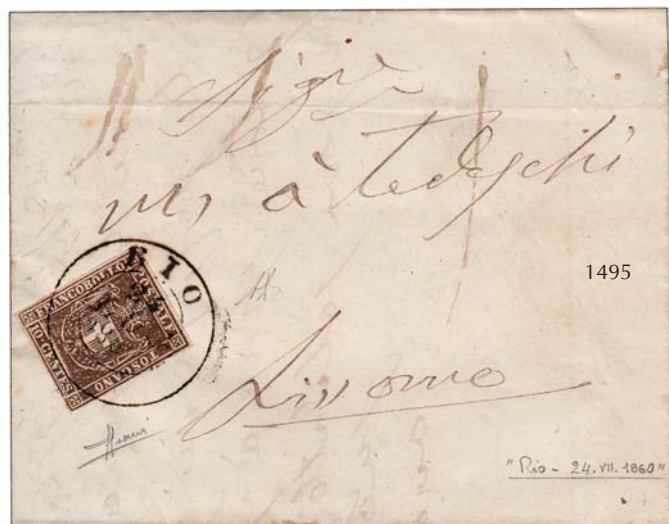 Sig.ri
à Tedeschi
1495
RIO
FRANCOBOLLO POSTALE TOSCANO 10 CENT
Livorno
"Rio - 24.VII.1860"